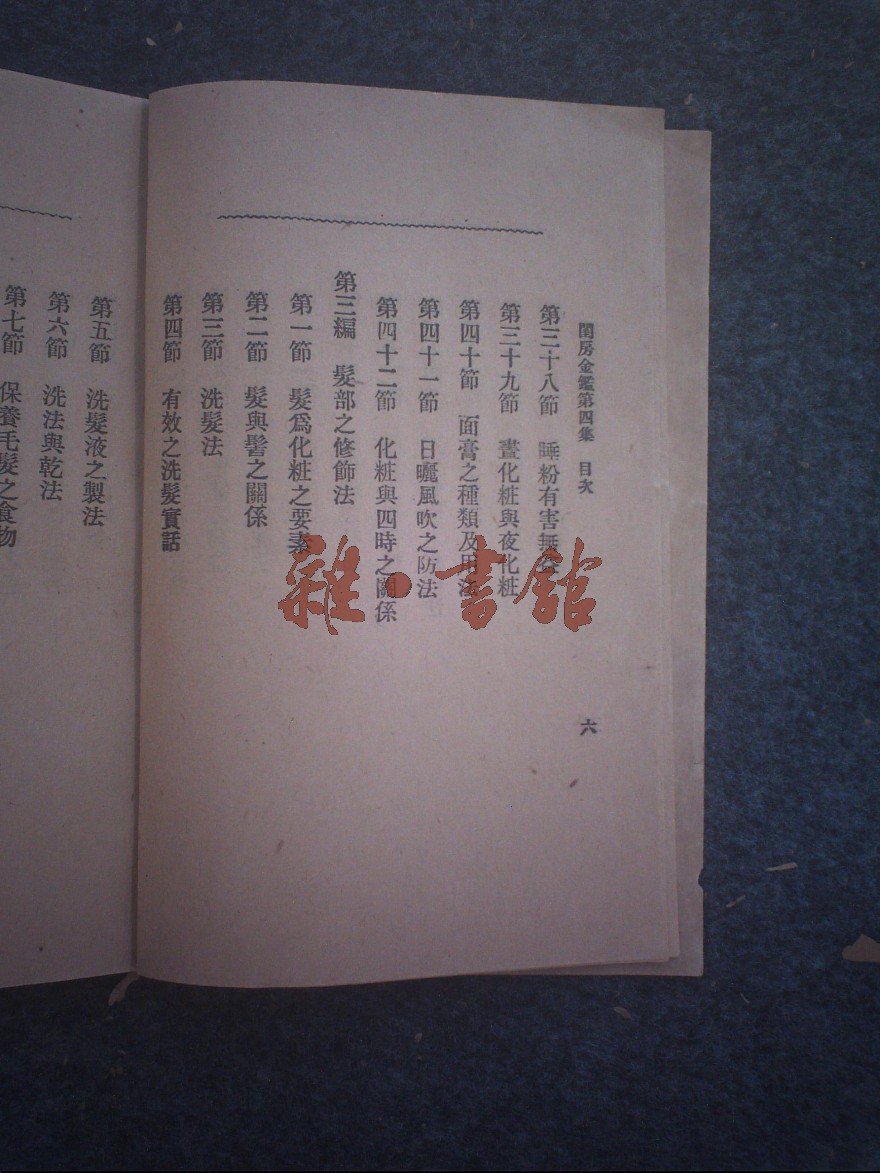 閨房金鑑第四集 目次
六
第三十八節 睡粉有害無益
第三十九節 晝化粧與夜化粧
第四十節 面膏之種類及用法
第四十一節 日曬風吹之防法
第四十二節 化粧與四時之關係
第三編 髮部之修飾法
第一節 髮爲化粧之要素
第二節 髮與髻之關係
第三節 洗髮法
第四節 有效之洗髮實話
第五節 洗髮液之製法
第六節 洗法與乾法
第七節 保養毛髮之食物
雜·書館